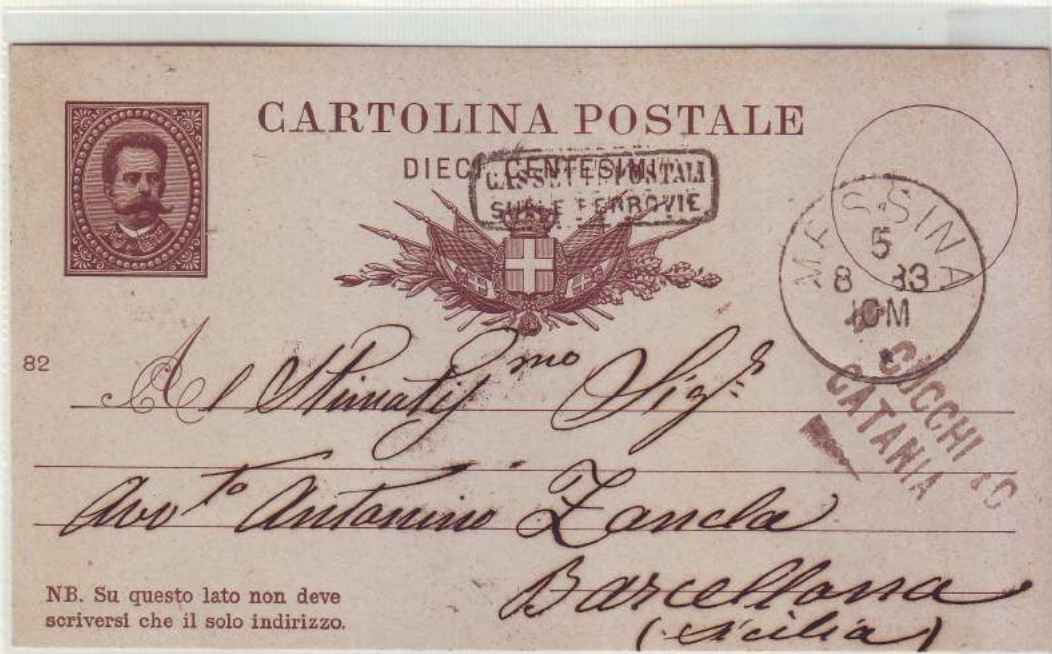 CARTOLINA POSTALE
DIECI CENTESIMI
CASSETTE POSTALI
SULLE FERROVIE
MESSINA
5
8 83
10M
82
Al Stimatis.mo Sig.r
CUCCHI
CATANIA
Avv.to Antonino Zancla
Barcellona
(Sicilia)
NB. Su questo lato non deve
scriversi che il solo indirizzo.